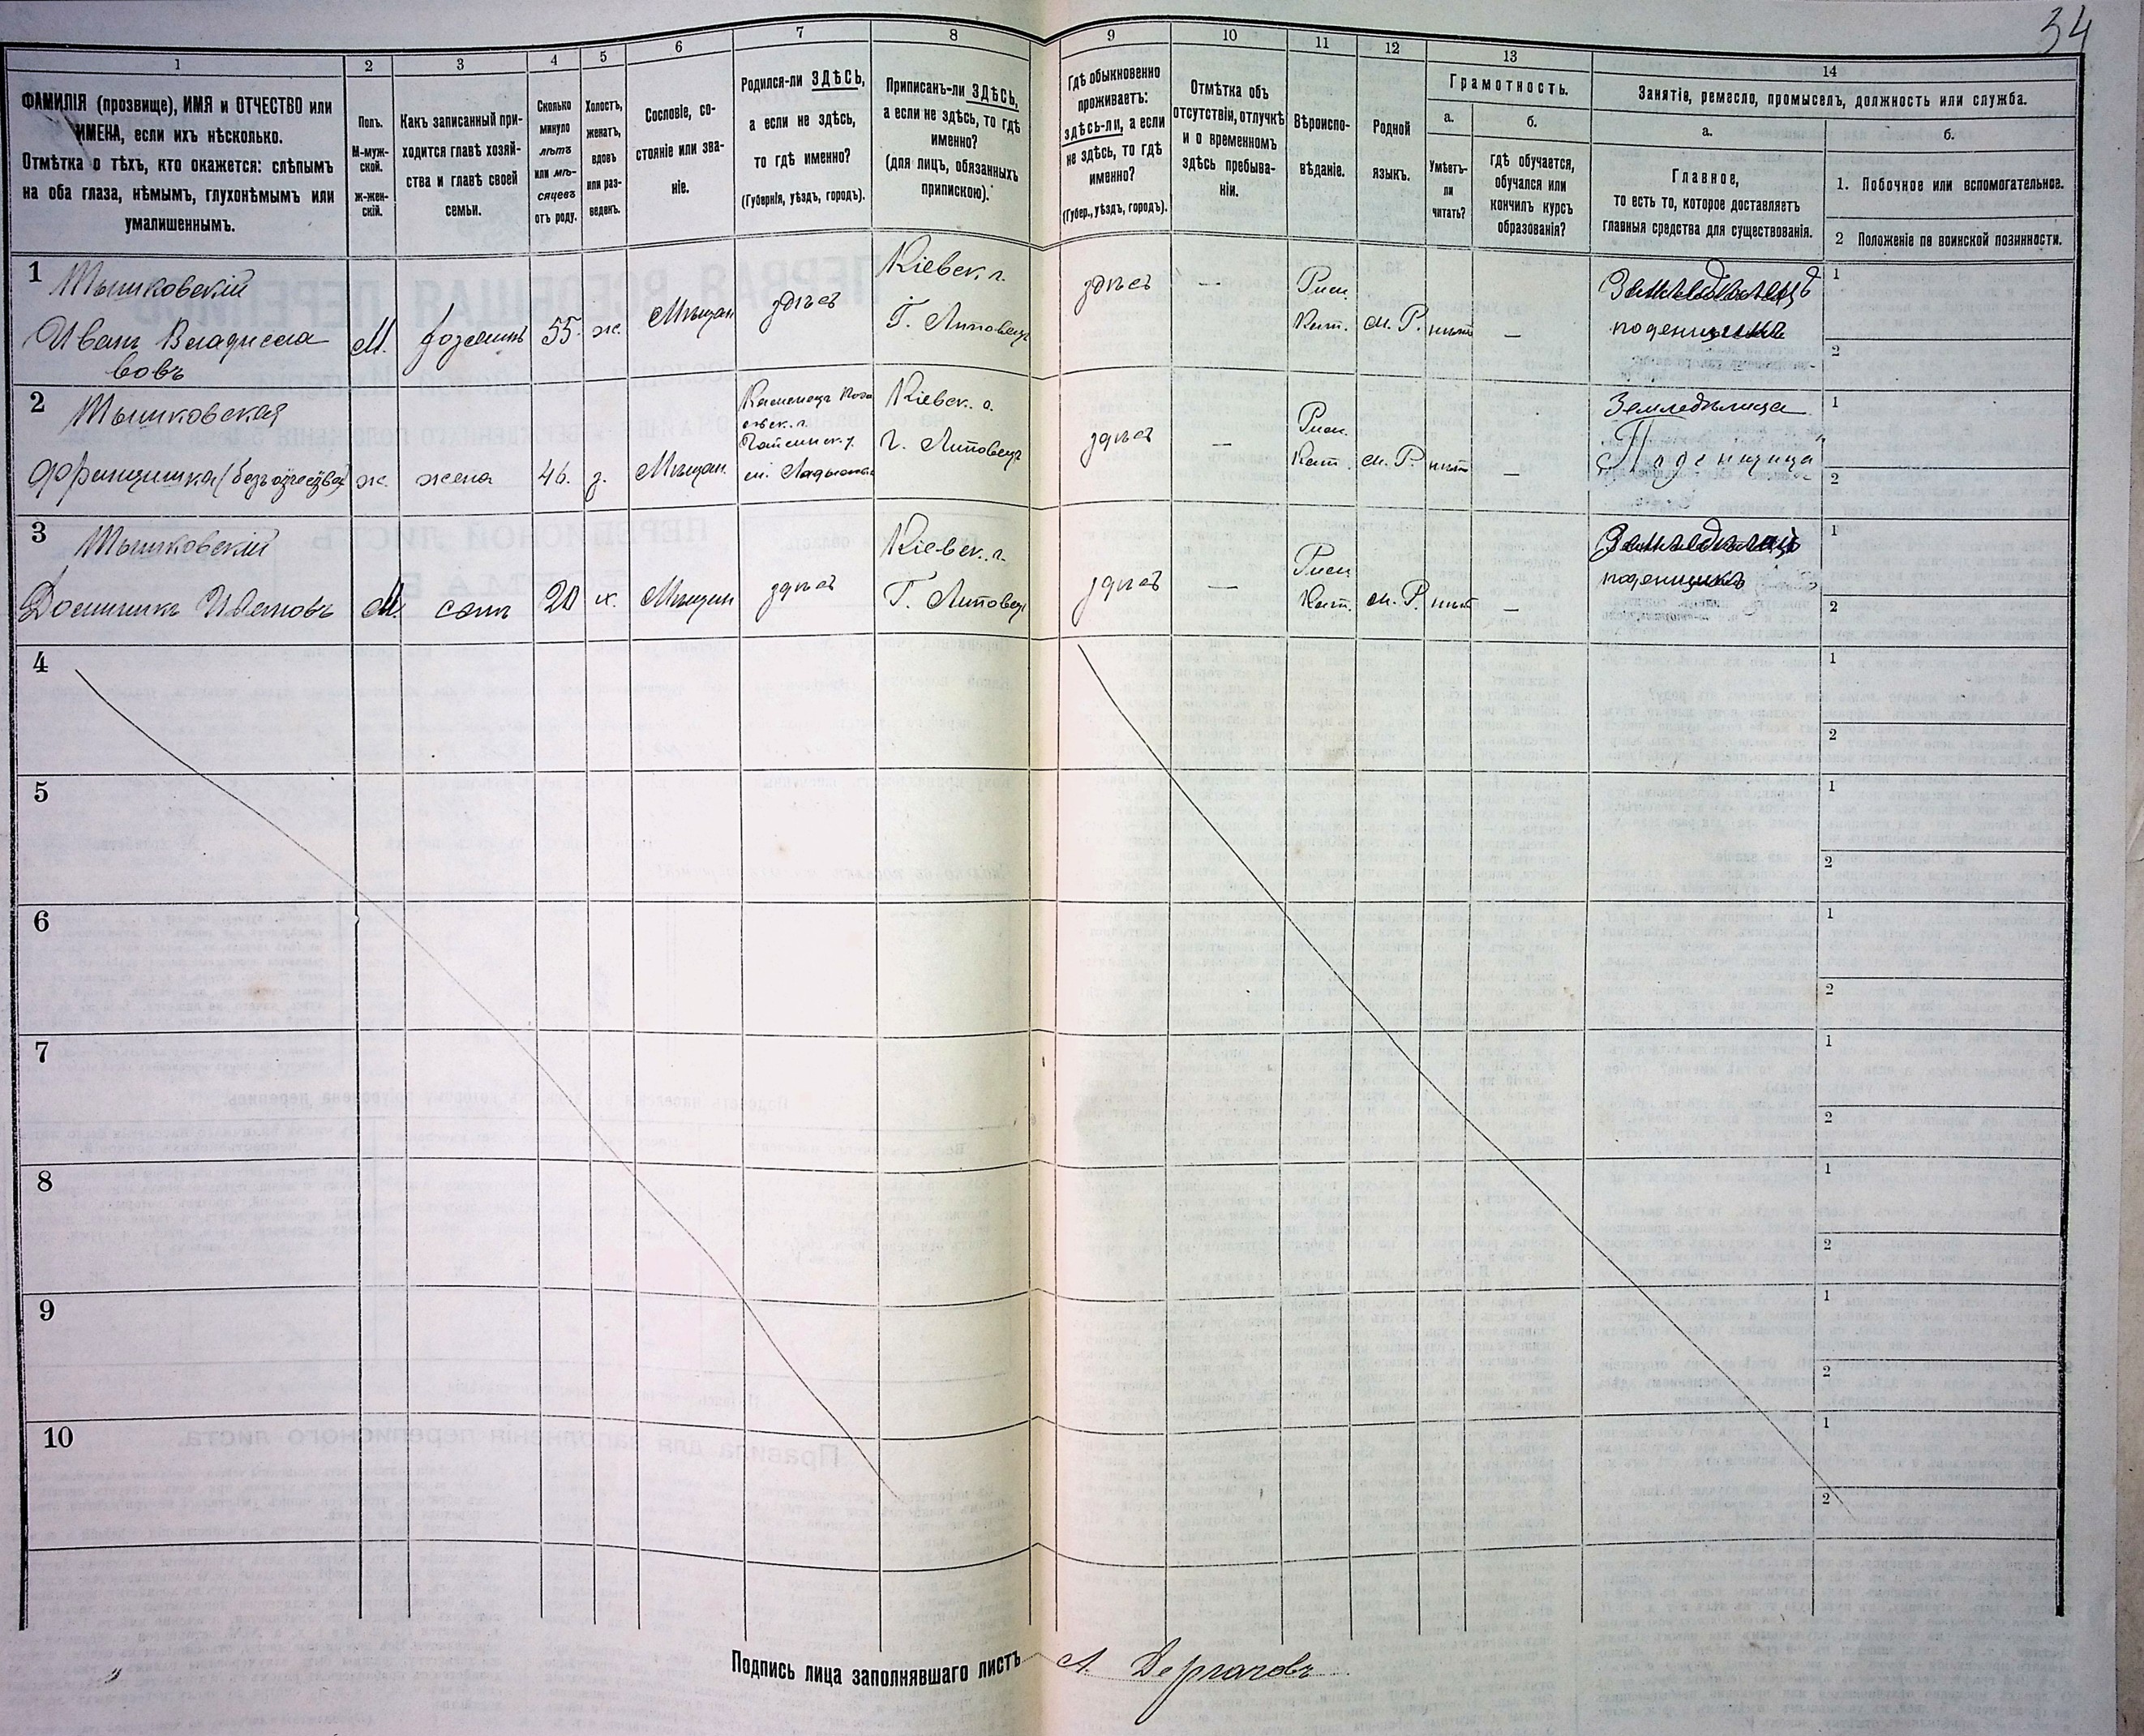 34
1
2
3
4
5
6
7
8
9
10
11
12
13
14
ФАМИЛІЯ (прозвище), ИМЯ и ОТЧЕСТВО или
ИМЕНА, если ихъ нѣсколько.
Отмѣтка о тѣхъ, кто окажется: слѣпымъ
на оба глаза, нѣмымъ, глухонѣмымъ или
умалишеннымъ.
Полъ.
М-муж-
ской.
ж-жен-
скій.
Какъ записанный при-
ходится главѣ хозяй-
ства и главѣ своей
семьи.
Сколько
минуло
лѣтъ
или мѣ-
сяцевъ
отъ роду.
Холостъ,
женатъ,
вдовъ
или раз-
веденъ.
Сословіе, со-
стояніе или зва-
ніе.
Родился-ли ЗДѢСЬ,
а если не здѣсь,
то гдѣ именно?
(Губернія, уѣздъ, городъ).
Приписанъ-ли ЗДѢСЬ,
а если не здѣсь, то гдѣ
именно?
(для лицъ, обязанныхъ
припискою).
Гдѣ обыкновенно
проживаетъ:
здѣсь-ли, а если
не здѣсь, то гдѣ
именно?
(Губер., уѣздъ, городъ).
Отмѣтка объ
отсутствіи, отлучкѣ
и о временномъ
здѣсь пребыва-
ніи.
Вѣроиспо-
вѣданіе.
Родной
языкъ.
Грамотность.
а.
Умѣетъ-
ли
читать?
б.
гдѣ обучается,
обучался или
кончилъ курсъ
образованія?
Занятіе, ремесло, промыселъ, должность или служба.
а.
Главное,
то есть то, которое доставляетъ
главныя средства для существованія.
б.
1. Побочное или вспомогательное.
2 Положеніе по воинской повинности.
1
Тышковскій
Иванъ Владисла
вовъ
М.
хозяинъ
55.
ж.
Мѣщан
здѣсь
Кіевск. г.
Г. Липовецъ
здѣсь
—
Рим.
Кат.
м. Р.
нѣтъ
—
Земледѣлецъ
1
2
2
Тышковская
Францишка (безъ отчества)
ж.
жена
46.
з.
Мѣщан.
г. Липовецъ
здѣсь
—
Рим.
Кат.
м. Р.
нѣтъ
—
Земледѣлица
Поденщица
1
2
3
Тышковскій
Доминикъ Ивановъ
М.
сынъ
20
х.
Мѣщан
здѣсь
Кіевск. г.
Г. Липовец
здѣсь
—
Рим.
Кат.
м. Р.
нѣт
—
Земледѣлецъ
поденщикъ
1
2
4
1
2
5
1
2
6
1
2
7
1
2
8
1
2
9
1
2
10
1
2
Подпись лица заполнявшаго листъ А. Дергачовъ